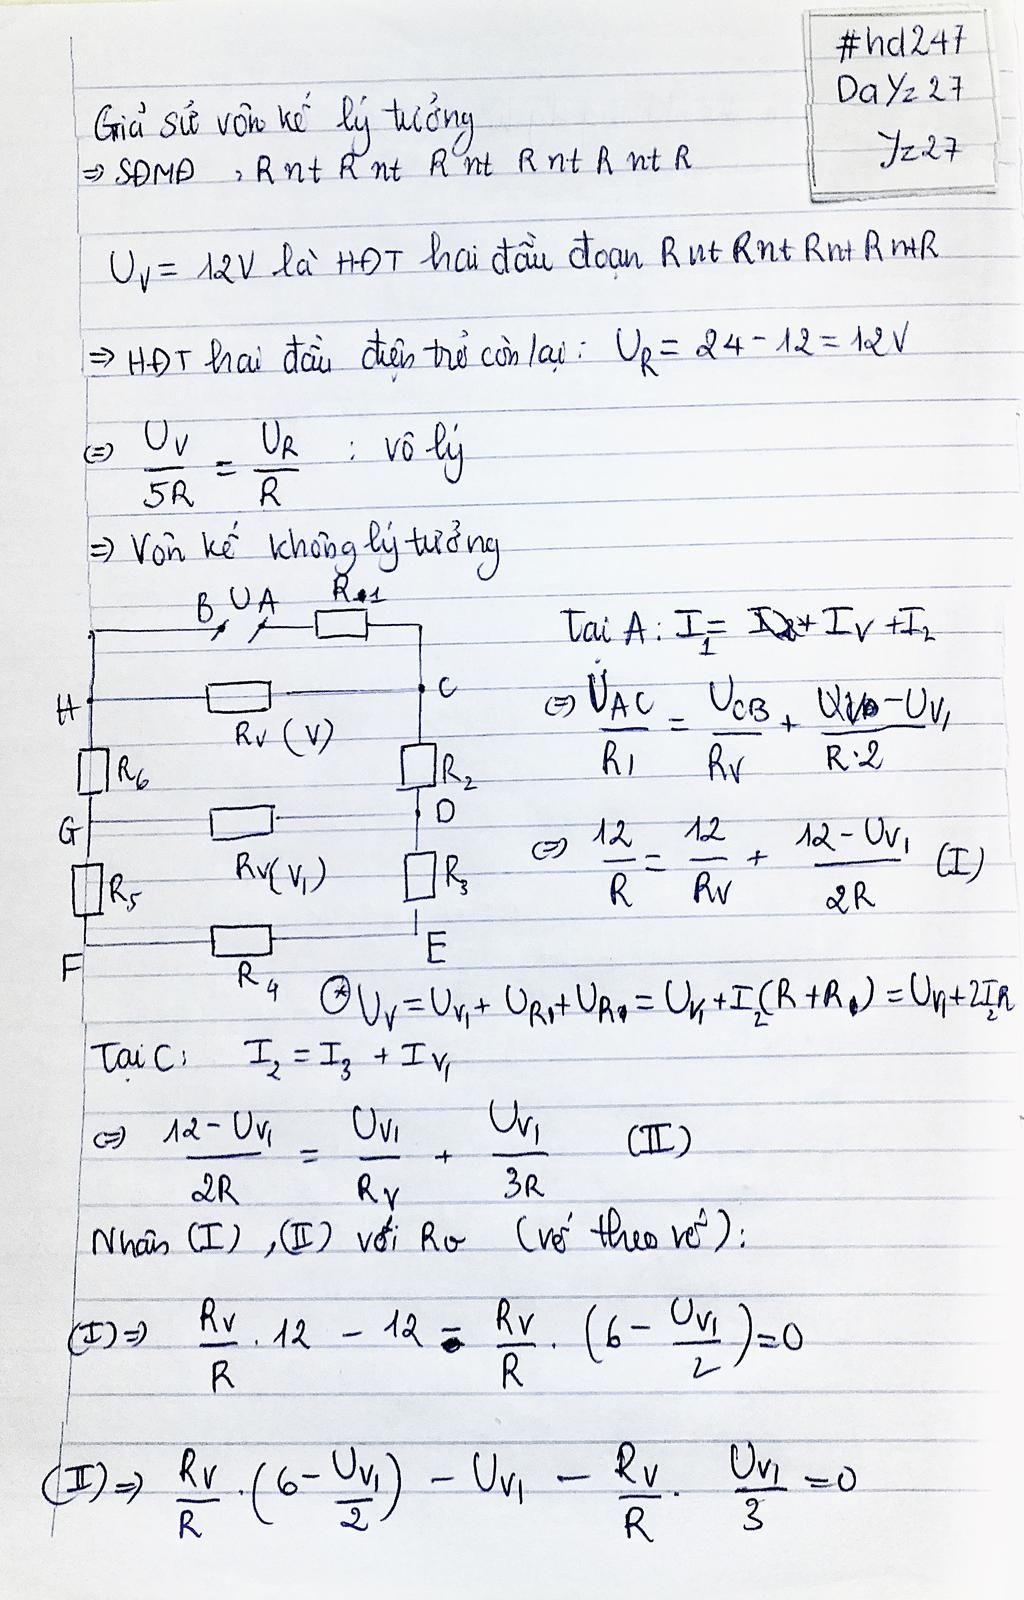 #hd247
DaYz27
Yz27
Giả sử vôn kế lý tưởng
⇒ SĐMĐ , R nt R nt R nt R nt R nt R
U_V = 12V là HĐT hai đầu đoạn R nt R nt R nt R nt R
⇒ HĐT hai đầu điện trở còn lại: U_R = 24 - 12 = 12V
⇔ U_V/5R = U_R/R : vô lý
⇒ Vôn kế không lý tưởng
B U A R1
H Rv (V) C
R6 R2
G Rv(V1) D
R5 R3
F R4 E
Tại A: I_1 = I_V + I_2
⇔ U_AC/R1 = U_CB/R_V + U_V - U_V1/R·2
⇔ 12/R = 12/R_V + 12 - U_V1/2R (I)
* U_V = U_V1 + U_R + U_R = U_V1 + I_2(R + R) = U_V1 + 2I_2R
Tại C: I_2 = I_3 + I_V1
⇔ 12 - U_V1/2R = U_V1/R_V + U_V1/3R (II)
Nhân (I), (II) với Rv (vế theo vế):
(I) ⇒ R_V/R . 12 - 12 - R_V/R . (6 - U_V1/2) = 0
(II) ⇒ R_V/R . (6 - U_V1/2) - U_V1 - R_V/R . U_V1/3 = 0